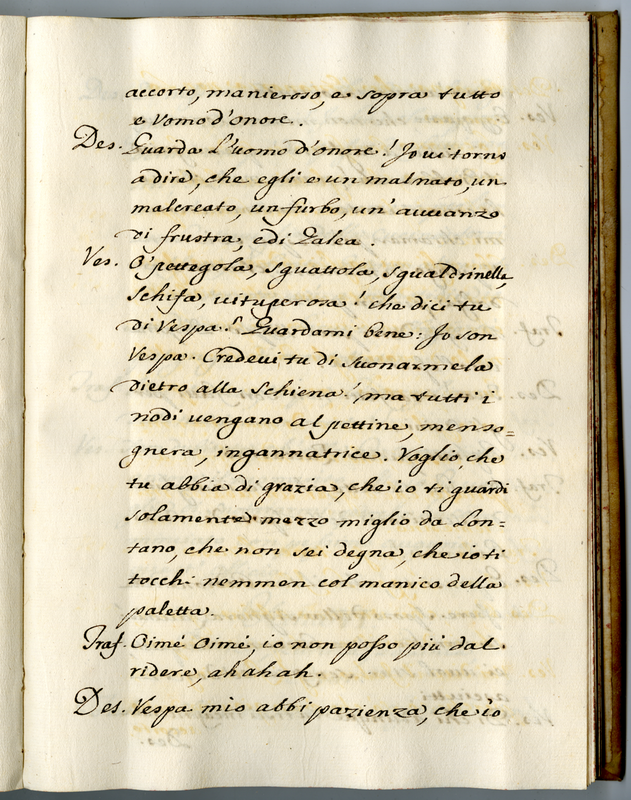 accorto, manieroso, e sopra tutto
e vomo d'onore.
Des. Guarda l'uomo d'onore! Jo vi torno
a dire, che egli e un malnato, un
malcreato, un furbo, un' avvanzo
di frustra, e di Galea.
Ves. O' pettegola, sguattola, sgualdrinella,
schifa, vituperosa! che dici tu
di Vespa? Guardami bene: Jo son
Vespa. Credevi tu di suonarmela
dietro alla schiena! ma tutti i
nodi vengano al pettine, menso=
gnera, ingannatrice. Voglio, che
tu abbia di grazia, che io ti guardi
solamente mezzo miglio da Lon=
tano, che non sei degna, che io ti
tocchi nemmen col manico della
paletta.
Traf. Oimé Oimé, io non posso più dal
ridere, ah ah ah.
Des. Vespa mio abbi pazienza, che io